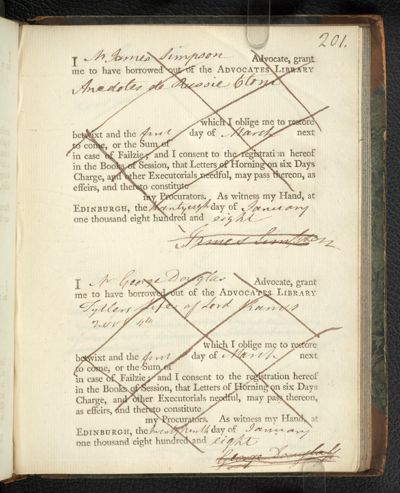 201.
I Mr James Simpson Advocate, grant
me to have borrowed out of the ADVOCATES LIBRARY
Anecdotes de Russie
which I oblige me to restore
betwixt and the first day of March next
to come, or the Sum of
in case of Failzie; and I consent to the registration hereof
in the Books of Session, that Letters of Horning on six Days
Charge, and other Executorials needful, may pass thereon, as
effeirs, and thereto constitute
my Procurators. As witness my Hand, at
EDINBURGH, the day of January
one thousand eight hundred and eight
James Simpson
I Mr George Douglas Advocate, grant
me to have borrowed out of the ADVOCATES LIBRARY
Tytlers Life of Lord Kames
2 vols 4to
which I oblige me to restore
betwixt and the first day of March next
to come, or the Sum of
in case of Failzie; and I consent to the registration hereof
in the Books of Session, that Letters of Horning on six Days
Charge, and other Executorials needful, may pass thereon,
as effeirs, and thereto constitute
my Procurators. As witness my Hand, at
EDINBURGH, the day of January
one thousand eight hundred and eight
George Douglas